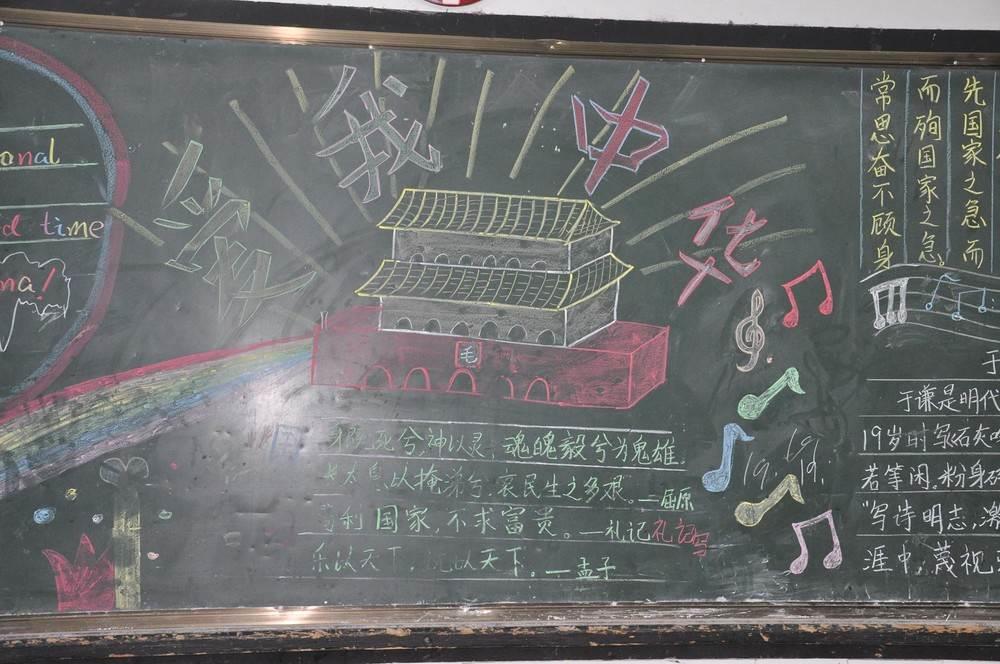 onal
d time
na!
爱我中华
毛
身既死兮神以灵，魂魄毅兮为鬼雄。
长太息以掩涕兮，哀民生之多艰。—屈原
苟利国家，不求富贵。—礼记 礼记写
乐以天下，忧以天下。—孟子
19. 19. 19.
先国家之急而
而殉国家之急。
常思奋不顾身
于
于谦是明代
19岁时写石灰
若等闲，粉身
"写诗明志，激
涯中，蔑视